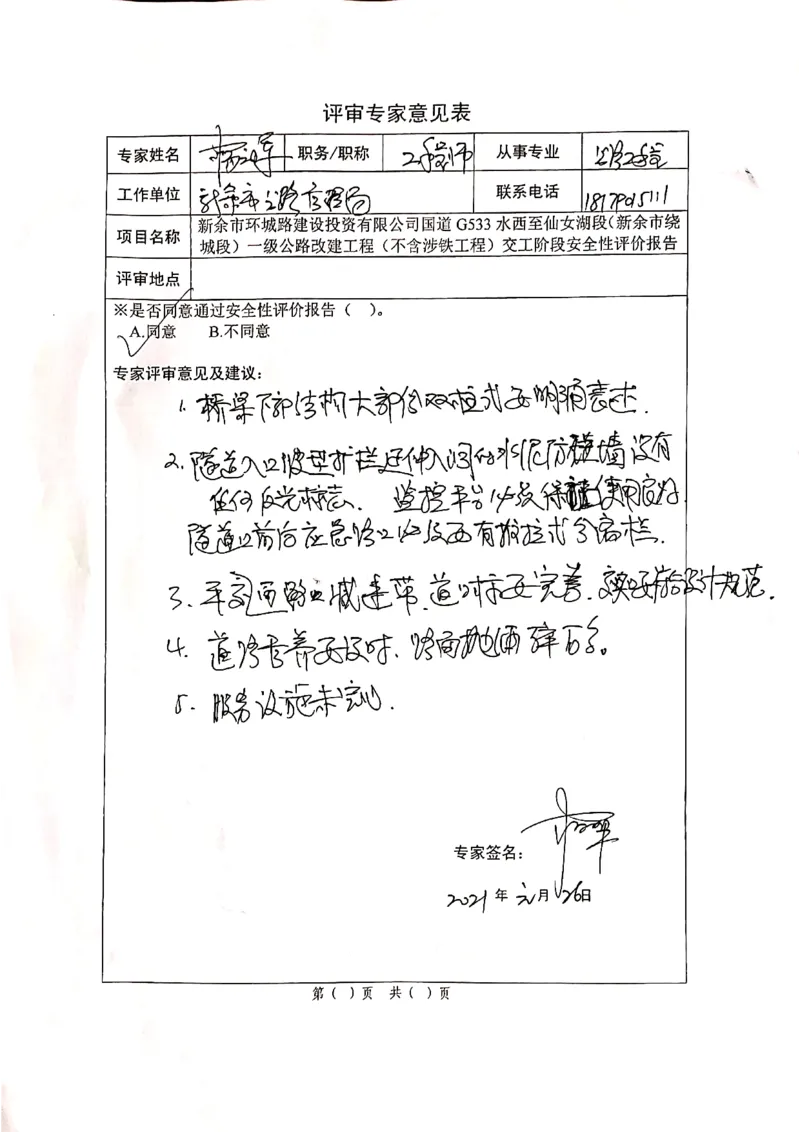 评审专家意见表
专家姓名 职务/职称 工程师 从事专业 公路工程
工作单位 新余市公路管理局 联系电话 18179015111
项目名称 新余市环城路建设投资有限公司国道 G533 水西至仙女湖段（新余市绕
城段）一级公路改建工程（不含涉铁工程）交工阶段安全性评价报告
评审地点
※是否同意通过安全性评价报告（ ）。
A.同意 B.不同意
专家评审意见及建议：
1. 桥梁下部结构大部份双柱式要明确表述.
2. 隧道入口波型护栏延伸入洞 水泥防撞墙没有
任何反光标志. 监控平台必须保证使用良好
隧道口前后应急路口必须要有推拉式分隔栏.
3. 平交 路口减速带.道口标要完善. 设计规范.
4. 道路 养要及时. 路面抛洒 。
5. 服务设施未完 .
专家签名：
2021 年 元月 26日
第（ ）页 共（ ）页